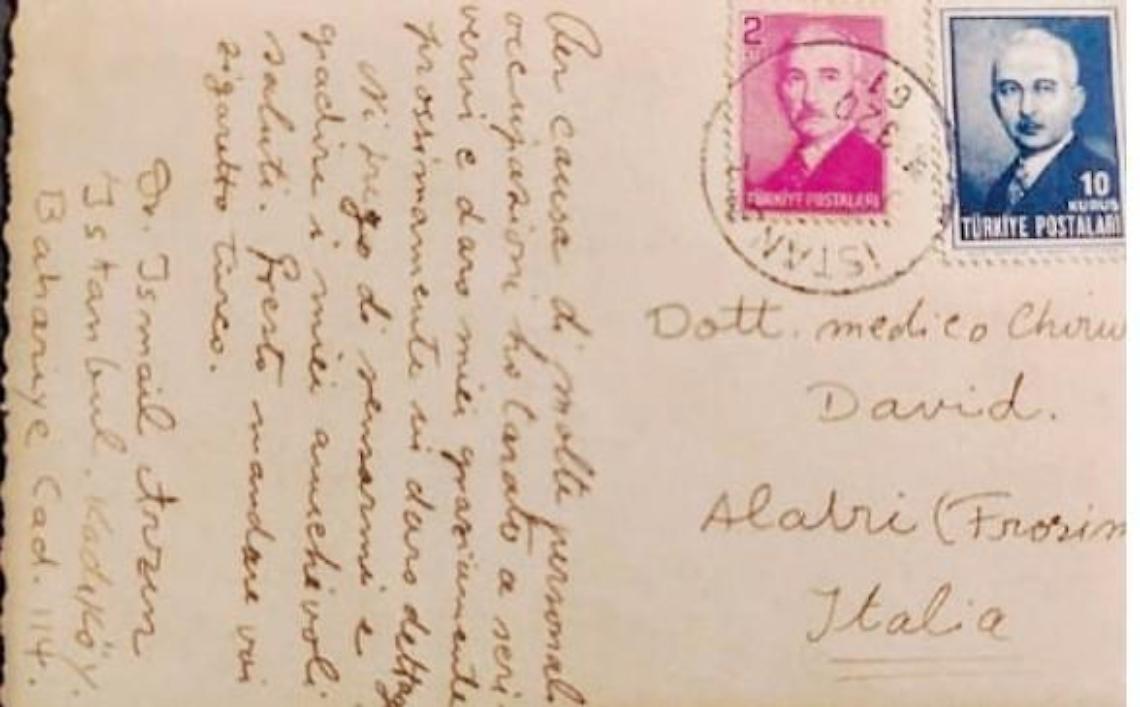 Per causa di molte personal
occupazioni ho tardato a scri-
vervi e daro miei
prossimamente vi daro
Vi prego di scusarmi e
gradire i miei amichevoli
saluti. Presto mandare voi
sigaretto turco.
Dr. Ismail
Istambul. Kadıköy.
Bahariye Cad. 114.
2
TÜRKİYE POSTALARI
10
KURUŞ
TÜRKİYE POSTALARI
İSTAN
Dott. medico Chiru
David.
Alatri (Frosin
Italia